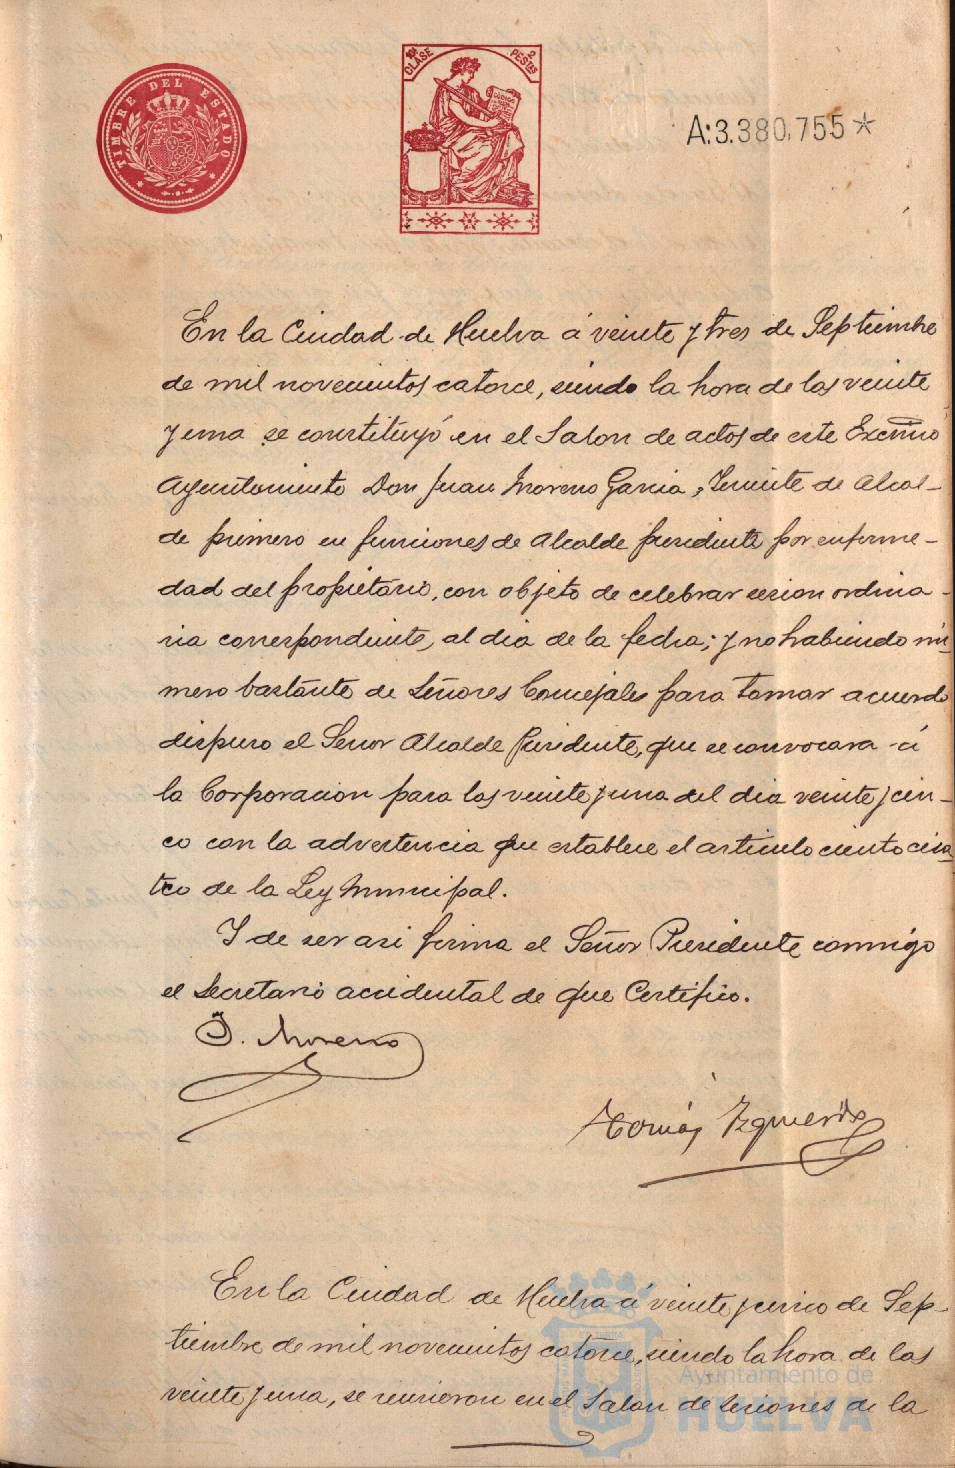 TIMBRE DEL ESTADO
10ª CLASE 2 PESTAS
A:3.380,755*
En la Ciudad de Huelva á veinte y tres de Septiembre
de mil novecientos catorce, siendo la hora de las veinte
y una se constituyó en el Salon de actos de este Excmo
Ayuntamiento Don Juan Moreno Garcia, Teniente de Alcal-
de primero en funciones de Alcalde presidente por enferme-
dad del propietario, con objeto de celebrar sesion ordina-
ria correspondiente, al dia de la fecha; y no habiendo nú-
mero bastante de Señores Concejales para tomar acuerdo
dispuso el Señor Alcalde Presidente, que se convocara á
la Corporacion para las veinte y una del dia veinte y cin-
co con la advertencia que establece el articulo ciento cua-
tro de la Ley Municipal.
Y de ser asi firma el Señor Presidente conmigo
el Secretario accidental de que Certifico.
J. Moreno
Tomás Izquierdo
En la Ciudad de Huelva á veinte y cinco de Sep-
tiembre de mil novecientos catorce, siendo la hora de las
veinte y una, se reunieron en el Salon de Sesiones de la
Ayuntamiento de
HUELVA